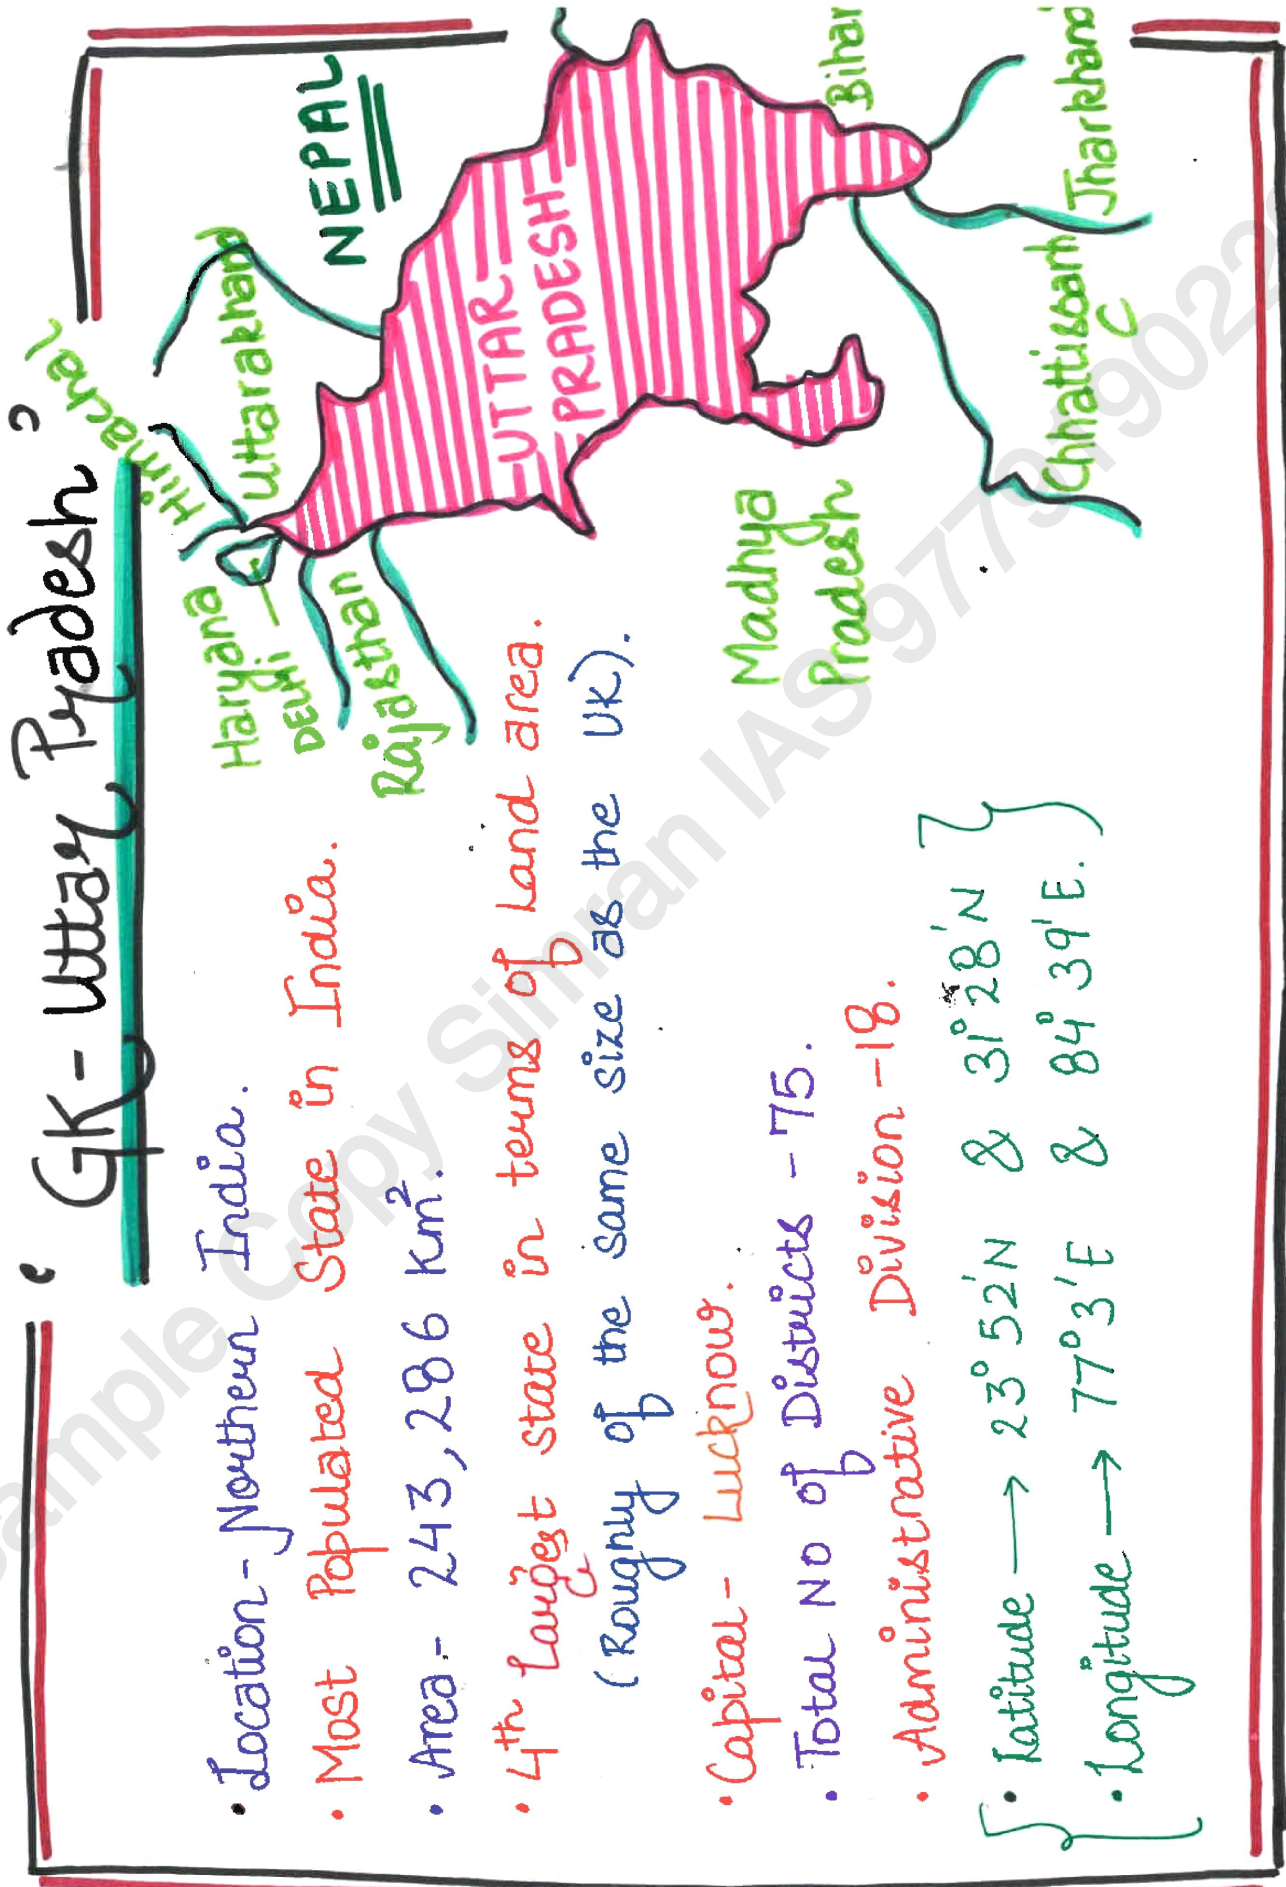 ' GK - Uttar Pradesh '
• Location - Northern India.
• Most Populated State in India.
• Area - 243,286 Km².
• 4th Largest state in terms of Land area.
(Roughly of the same size as the UK).
• Capital - Lucknow.
• Total No of Districts - 75.
• Administrative Division - 18.
• Latitude → 23° 52'N & 31° 28'N
• Longitude → 77° 3'E & 84° 39'E.
Himachal
Haryana
Uttarakhand
DELHI
Rajasthan
NEPAL
UTTAR
PRADESH
Madhya
Pradesh
Bihar
Chhattisgarh
Jharkhand
Sample Copy Simran IAS